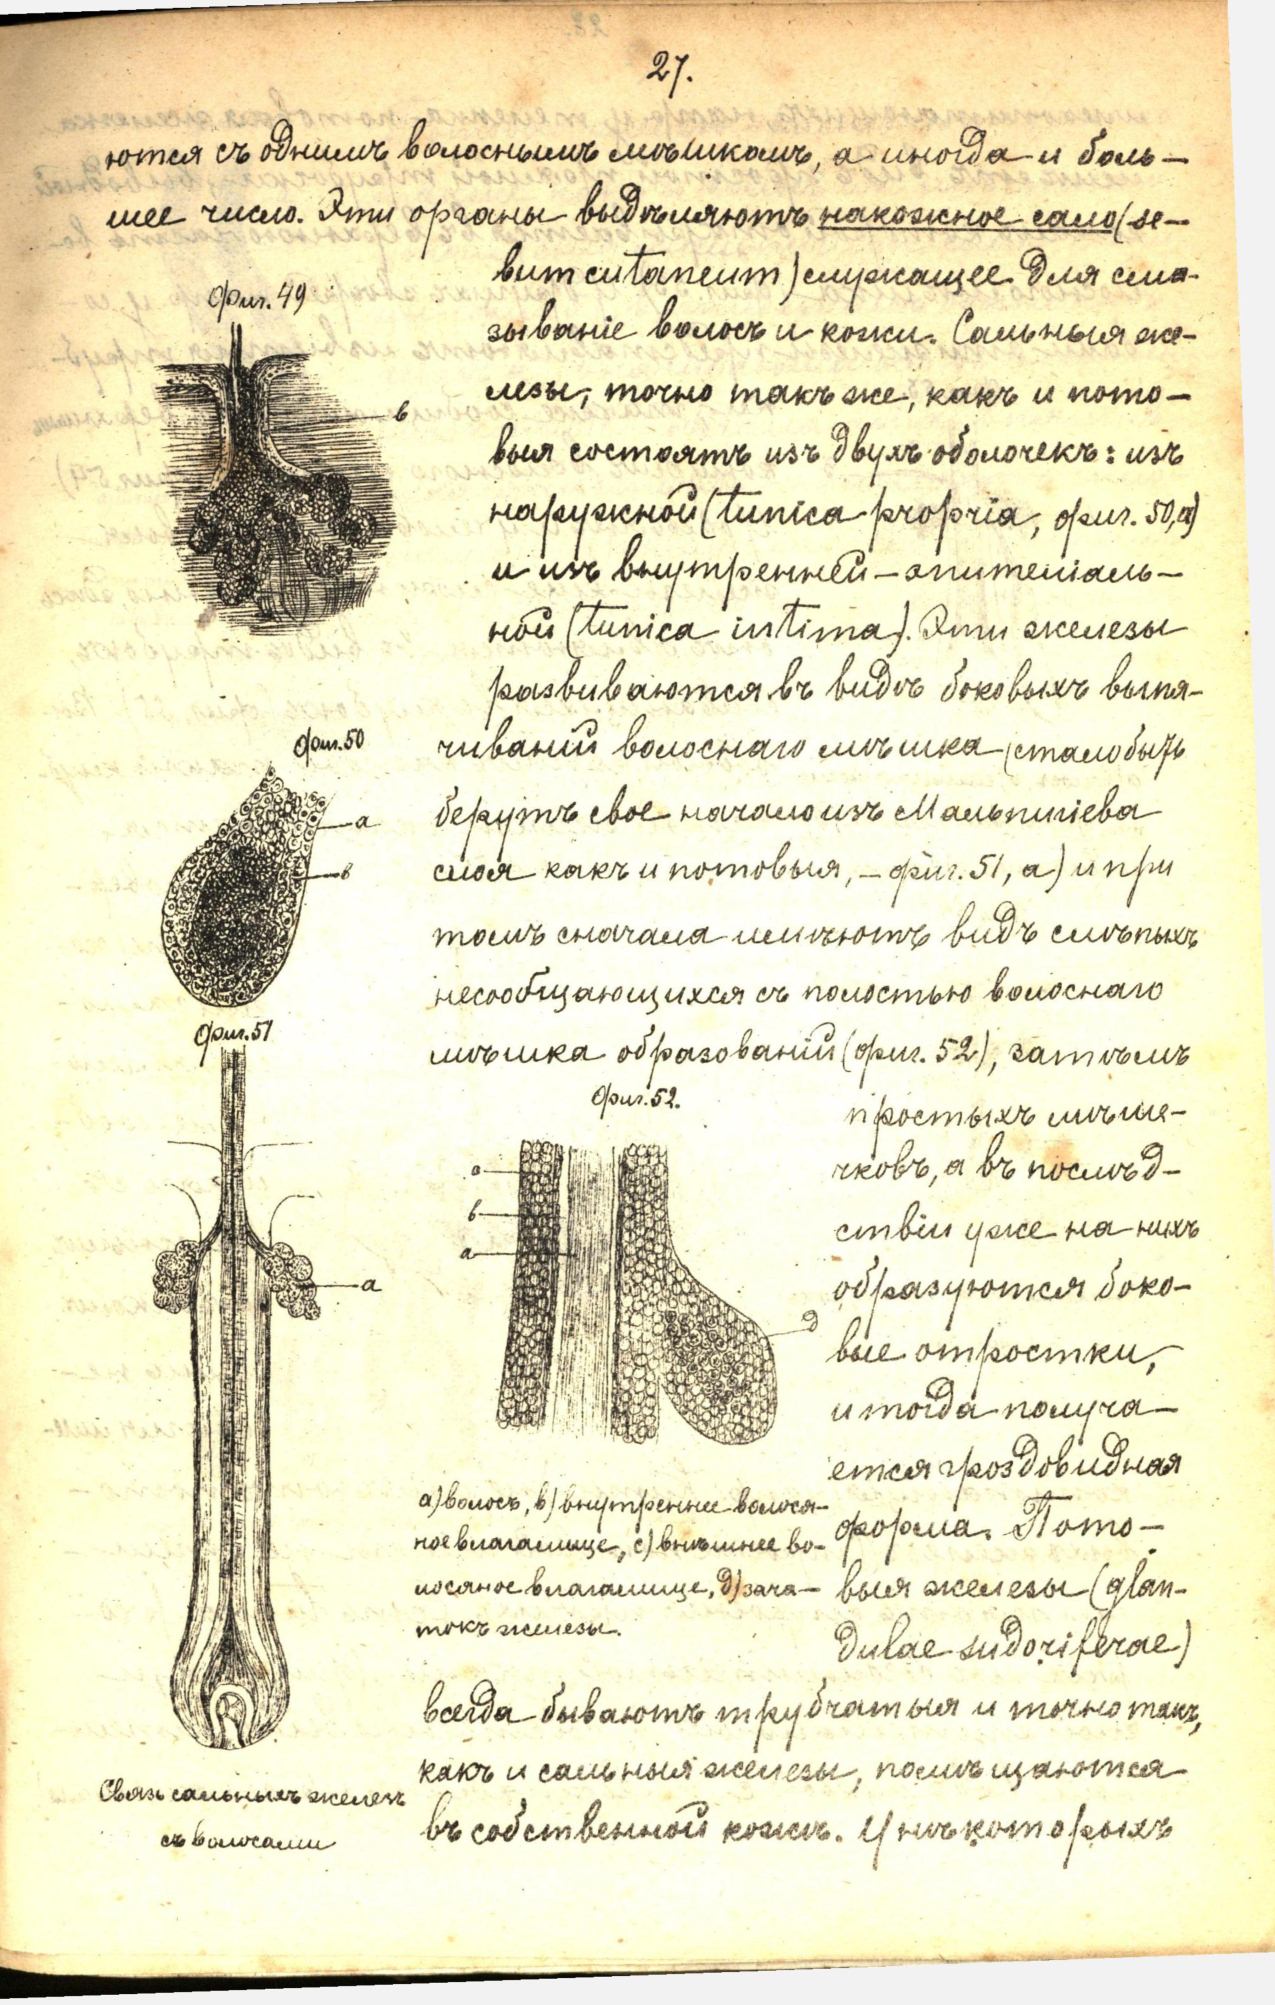 27.
ются съ однимъ волоснымъ мѣшкомъ, а иногда и боль-
шее число. Эти органы выдѣляютъ накожное сало (se-
bum cutaneum) служащее для сма-
зываніе волосъ и кожи. Сальныя же-
лезы, точно такъ же, какъ и пото-
выя состоятъ изъ двухъ оболочекъ: изъ
наружной (tunica propria, фиг. 50, а)
и изъ внутренней – эпителіаль-
ной (tunica intima). Эти железы
развиваются въ видѣ боковыхъ выпя-
чиваній волоснаго мѣшка (стало быть
берутъ свое начало изъ Мальпигіева
слоя какъ и потовыя, – фиг. 51, а) и при
томъ сначала имѣютъ видъ слѣпыхъ
несообщающихся съ полостью волоснаго
мѣшка образованій (фиг. 52), затѣмъ
простыхъ мѣше-
чковъ, а въ послѣд-
ствіи уже на нихъ
образуются боко-
вые отростки,
и тогда получа-
ется гроздовидная
форма. Пото-
выя железы (glan-
dulae sudoriferae)
всегда бываютъ трубчатыя и точно такъ,
какъ и сальныя железы, помѣщаются
въ собственной кожѣ. У нѣкоторыхъ
Фиг. 49
в
Фиг. 50
а
в
Фиг. 51
а
Связь сальныхъ железъ
съ волосами
Фиг. 52.
а
в
а
д
а) волосъ, в) внутреннее волося-
ное влагалище, с) внѣшнее во-
лосяное влагалище, д) зача-
токъ железы.